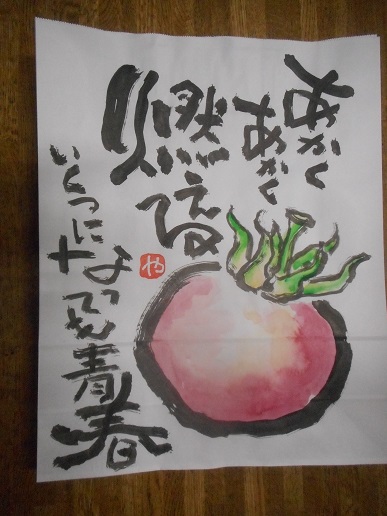 あかく
あかく
燃える
いくつに
なっても青春